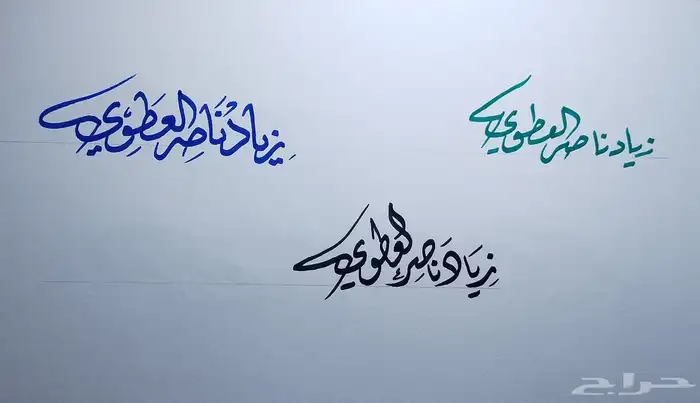 زياد ناصر العطوي
زياد ناصر العطوي
زياد ناصر العطوي
حراج